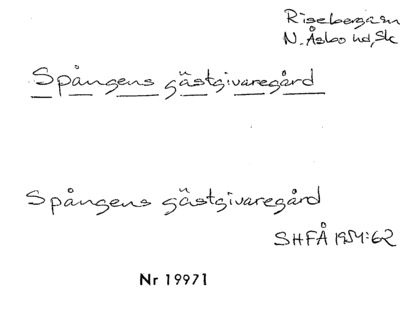 Riseberga sn
N. Åsbo hd, Sk
Spångens gästgivaregård
Spångens gästgivaregård
SHFÅ 1954:62
Nr 19971